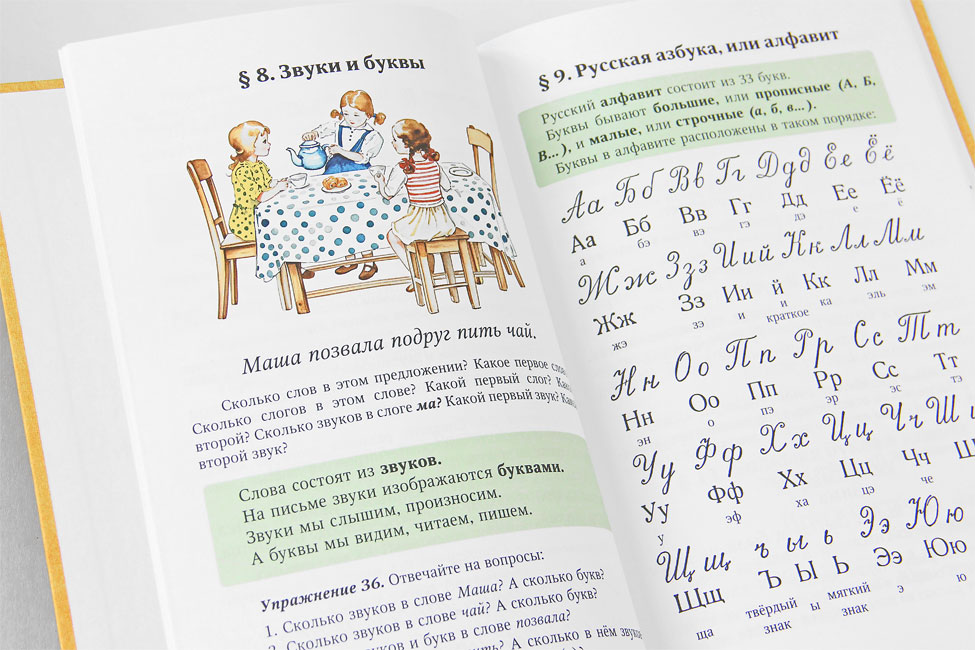 § 8. Звуки и буквы
Маша позвала подруг пить чай.
Сколько слов в этом предложении? Какое первое
Сколько слогов в этом слове? Какой первый слог?
второй? Сколько звуков в слоге ма? Какой первый звук?
второй звук?
Слова состоят из звуков.
На письме звуки изображаются буквами.
Звуки мы слышим, произносим.
А буквы мы видим, читаем, пишем.
Упражнение 36. Отвечайте на вопросы:
1. Сколько звуков в слове Маша? А сколько букв?
Сколько звуков в слове чай? А сколько букв?
звуков и букв в слове позвала?
А сколько в нём звуков
§ 9. Русская азбука, или алфавит
Русский алфавит состоит из 33 букв.
Буквы бывают большие, или прописные (А, Б,
В...), и малые, или строчные (а, б, в...).
Буквы в алфавите расположены в таком порядке:
Аа Бб Вв Гг Дд Ее Ёё
Аа Бб Вв Гг Дд Ее Ёё
а бэ вэ гэ дэ е ё
Жж Зз Иий Кк Лл Мм
Жж Зз Ии й Кк Лл Мм
жэ зэ и и ка эль эм
краткое
Нн Оо Пп Рр Сс Тт
Нн Оо Пп Рр Сс Тт
эн о пэ эр эс тэ
Уу Фф Хх Цц Чч Ш
Уу Фф Хх Цц Чч Ш
у эф ха цэ че
Щщ ъ ы ь Ээ Юю
Щщ Ъ Ы Ь Ээ Юю
ща твёрдый ы мягкий э ю
знак знак